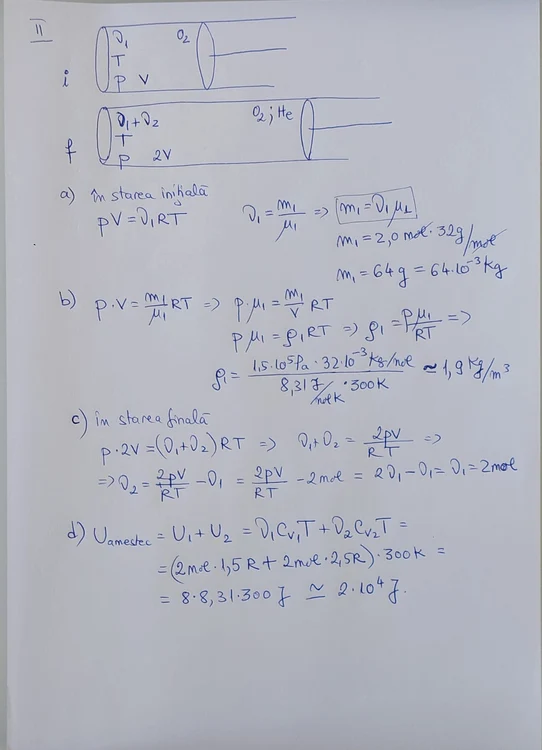 II
ν₁ O₂
T
i p V
ν₁+ν₂ O₂; He
T
f p 2V
a) în starea inițială
pV=ν₁RT ν₁=m₁/μ₁ => m₁=ν₁μ₁
m₁=2,0 mol·32g/mol
m₁=64g=64·10⁻³kg
b) p·V=m₁/μ₁ RT => p·μ₁=m₁/V RT
pμ₁=ρ₁RT => ρ₁=pμ₁/RT =>
ρ₁= 1,5·10⁵Pa·32·10⁻³kg/mol / 8,31 J/molK ·300K ≃ 1,9 kg/m³
c) în starea finală
p·2V=(ν₁+ν₂)RT => ν₁+ν₂ = 2pV/RT =>
=> ν₂= 2pV/RT -ν₁ = 2pV/RT -2mol = 2ν₁-ν₁=ν₁=2mol
d) Uamestec = U₁+U₂ = ν₁Cv₁T+ν₂Cv₂T =
=(2mol·1,5R+2mol·2,5R)·300K =
= 8·8,31·300J ≃ 2·10⁴J.